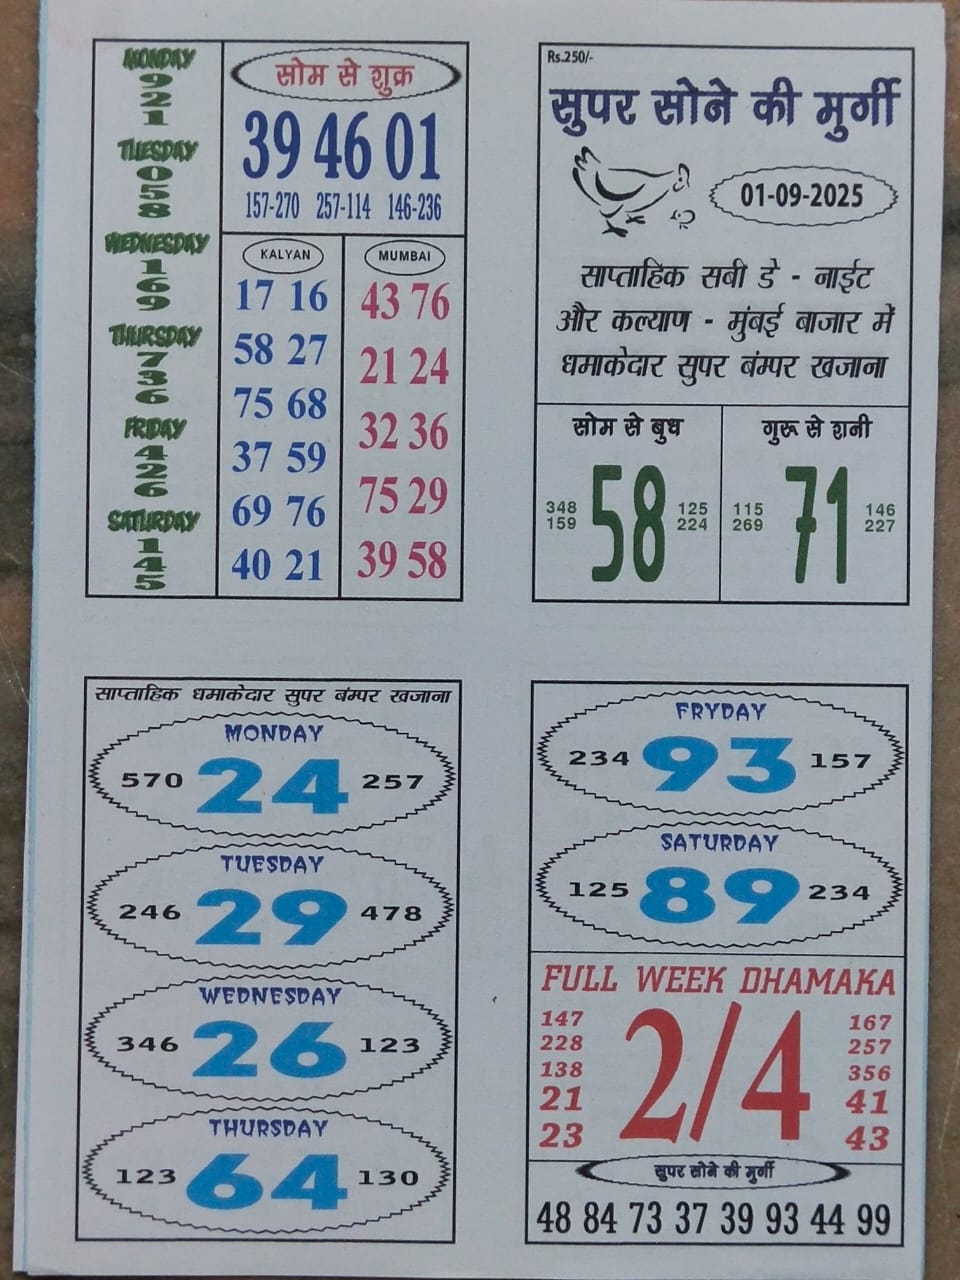 MONDAY
9
2
1
TUESDAY
0
5
8
WEDNESDAY
1
6
9
THURSDAY
7
3
6
FRIDAY
4
2
6
SATURDAY
1
4
5
सोम से शुक्र
39 46 01
157-270 257-114 146-236
KALYAN
17 16
58 27
75 68
37 59
69 76
40 21
MUMBAI
43 76
21 24
32 36
75 29
39 58
Rs.250/-
सुपर सोने की मुर्गी
01-09-2025
साप्ताहिक सबी डे - नाईट
और कल्याण - मुंबई बाजार में
धमाकेदार सुपर बंम्पर खजाना
सोम से बुध
348 58 125
159 224
गुरू से शनी
115 71 146
269 227
साप्ताहिक धमाकेदार सुपर बंम्पर खजाना
MONDAY
570 24 257
TUESDAY
246 29 478
WEDNESDAY
346 26 123
THURSDAY
123 64 130
FRYDAY
234 93 157
SATURDAY
125 89 234
FULL WEEK DHAMAKA
2/4
147
228
138
21
23
167
257
356
41
43
सुपर सोने की मुर्गी
48 84 73 37 39 93 44 99